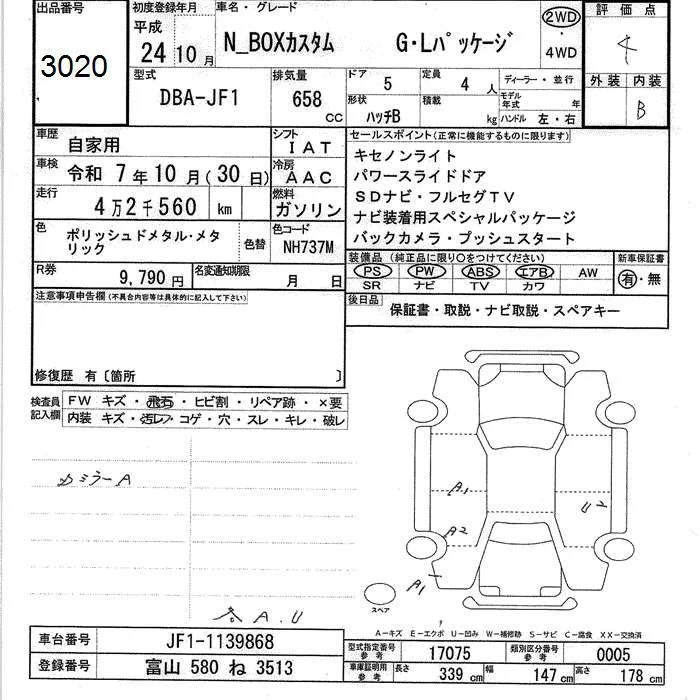 出品番号
3020
初度登録年月
平成
24 10 月
車名・グレード
N_BOXカスタム G・Lパッケージ
2WD
・
4WD
評価点
4
外装 内装
B
型式
DBA-JF1
排気量
658 CC
ドア 5
定員 4 人
形状 ハッチB
積載 kg
ディーラー・並行
モデル年式 年
ハンドル 左・右
車歴 自家用
シフト IAT
車検 令和 7 年 10 月 ( 30 日)
冷房 AAC
走行 4万2千560 km
燃料 ガソリン
色 ポリッシュドメタル・メタリック
色替
色コード NH737M
R券 9,790 円
名変通知期限 月 日
セールスポイント(正常に機能するものに限ります)
キセノンライト
パワースライドドア
SDナビ・フルセグTV
ナビ装着用スペシャルパッケージ
バックカメラ・プッシュスタート
装備品 (純正品に限り〇をつけてください)
PS PW ABS エアB AW
SR ナビ TV カワ
新車保証書
有・無
後日品
保証書・取説・ナビ取説・スペアキー
注意事項申告欄(不具合内容等は具体的に記入して下さい)
修復歴 有〔箇所 〕
検査員記入欄
FW キズ・飛石・ヒビ割・リペア跡・×要
内装 キズ・汚レ・コゲ・穴・スレ・キレ・破レ
ミラーA
A1
A2
A1
U2
A.U
スペア
A−キズ E−エクボ U−凹み W−補修跡 S−サビ C−腐食 XX−交換済
車台番号 JF1-1139868
登録番号 富山 580 ね 3513
型式指定番号 参考 17075
類別区分番号 参考 0005
車庫証明用 参考 長さ 339 cm 幅 147 cm 高さ 178 cm